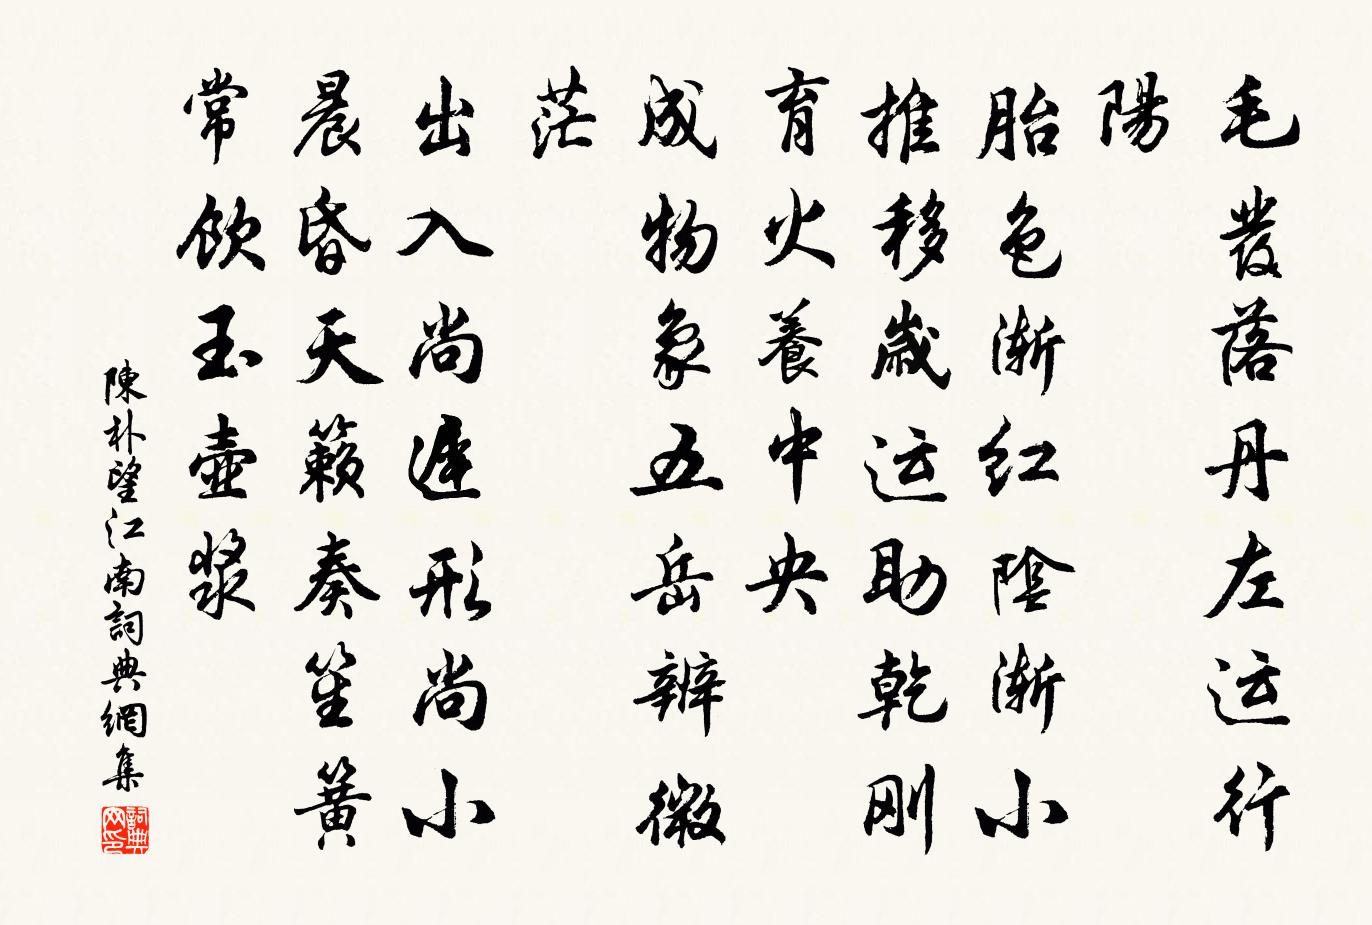 毛发落丹左运行
陽
胎色渐红陰渐小
推移歳运助乾刚
育火養中央
成物象五岳辨微
茫
出入尚遲形尚小
晨昏天籟奏笙簧
常飲玉壺漿
陳朴望江南詞典網集
詞典网印